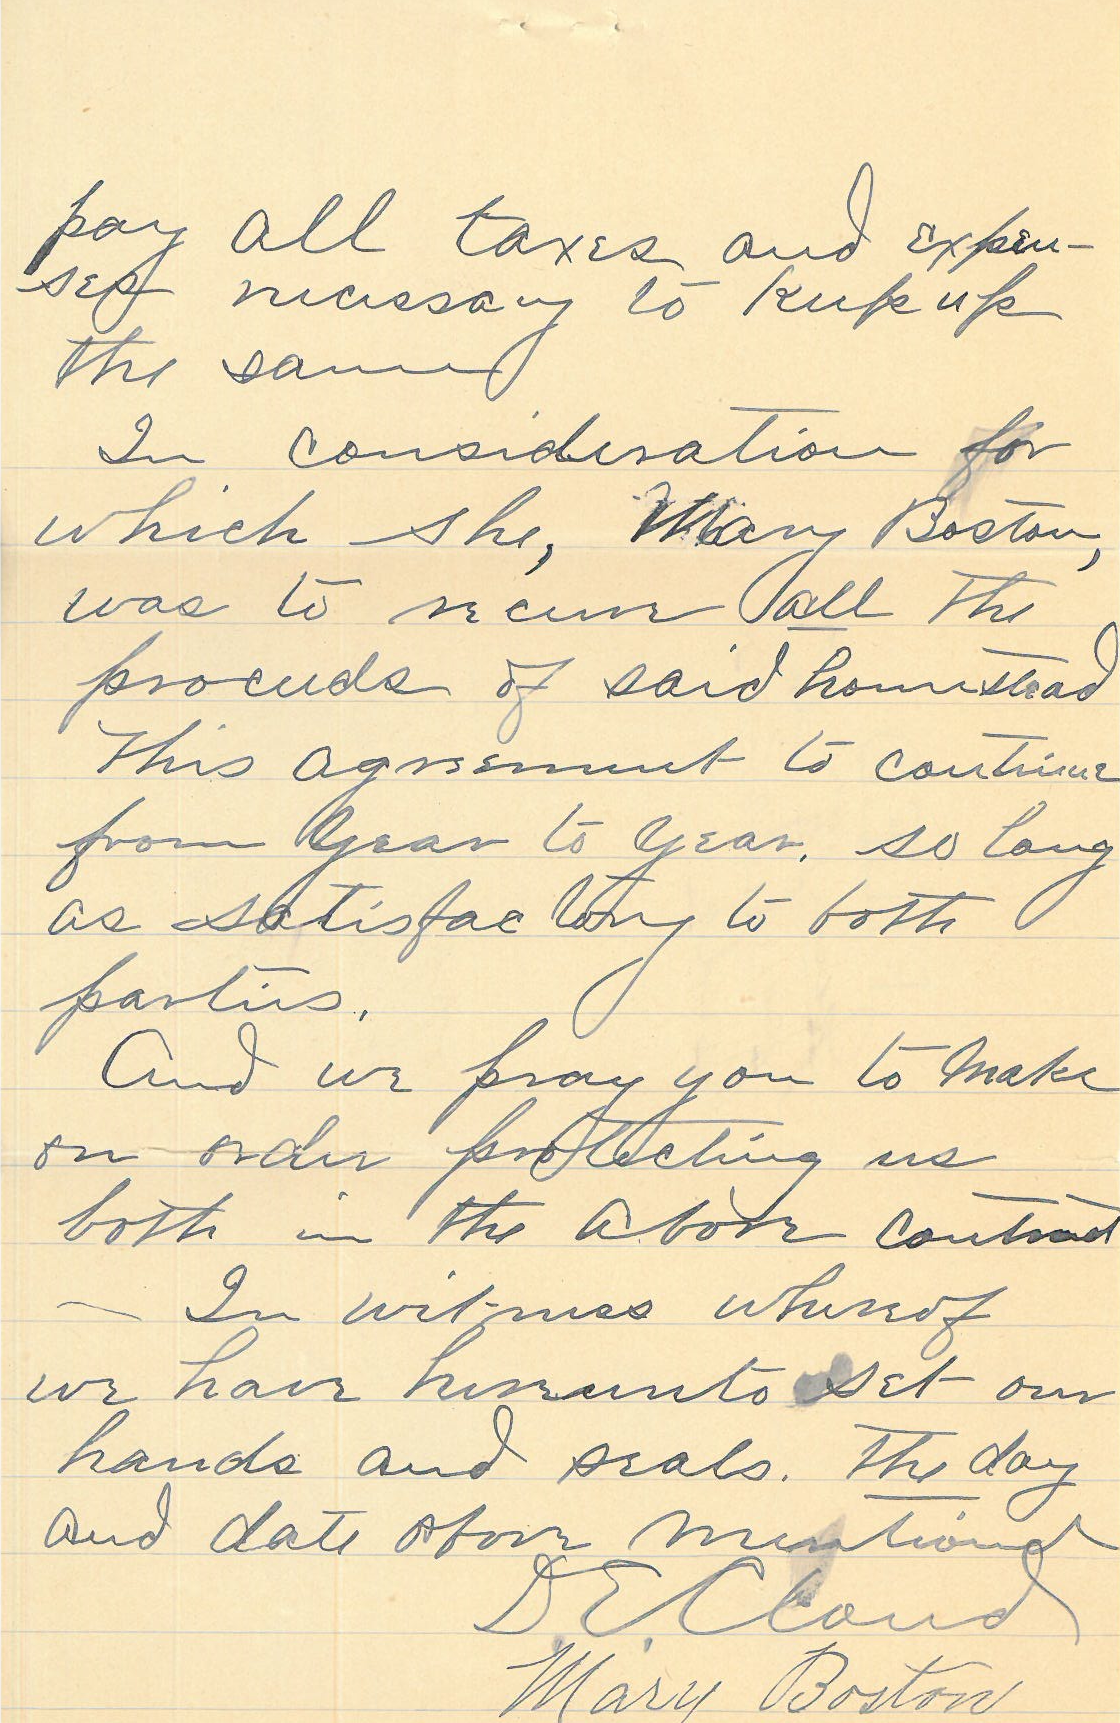 pay all taxes and expen-
ses necessary to keep up
the same
In consideration for
which she, Mary Boston,
was to receive all the
proceeds of said homestead
This agreement to continue
from year to year, so long
as satisfactory to both
parties.
And we pray you to make
an order protecting us
both in the above contract
— In witness whereof
we have hereunto set our
hands and seals. The day
and date above mentioned
D.E. Cloud
Mary Boston